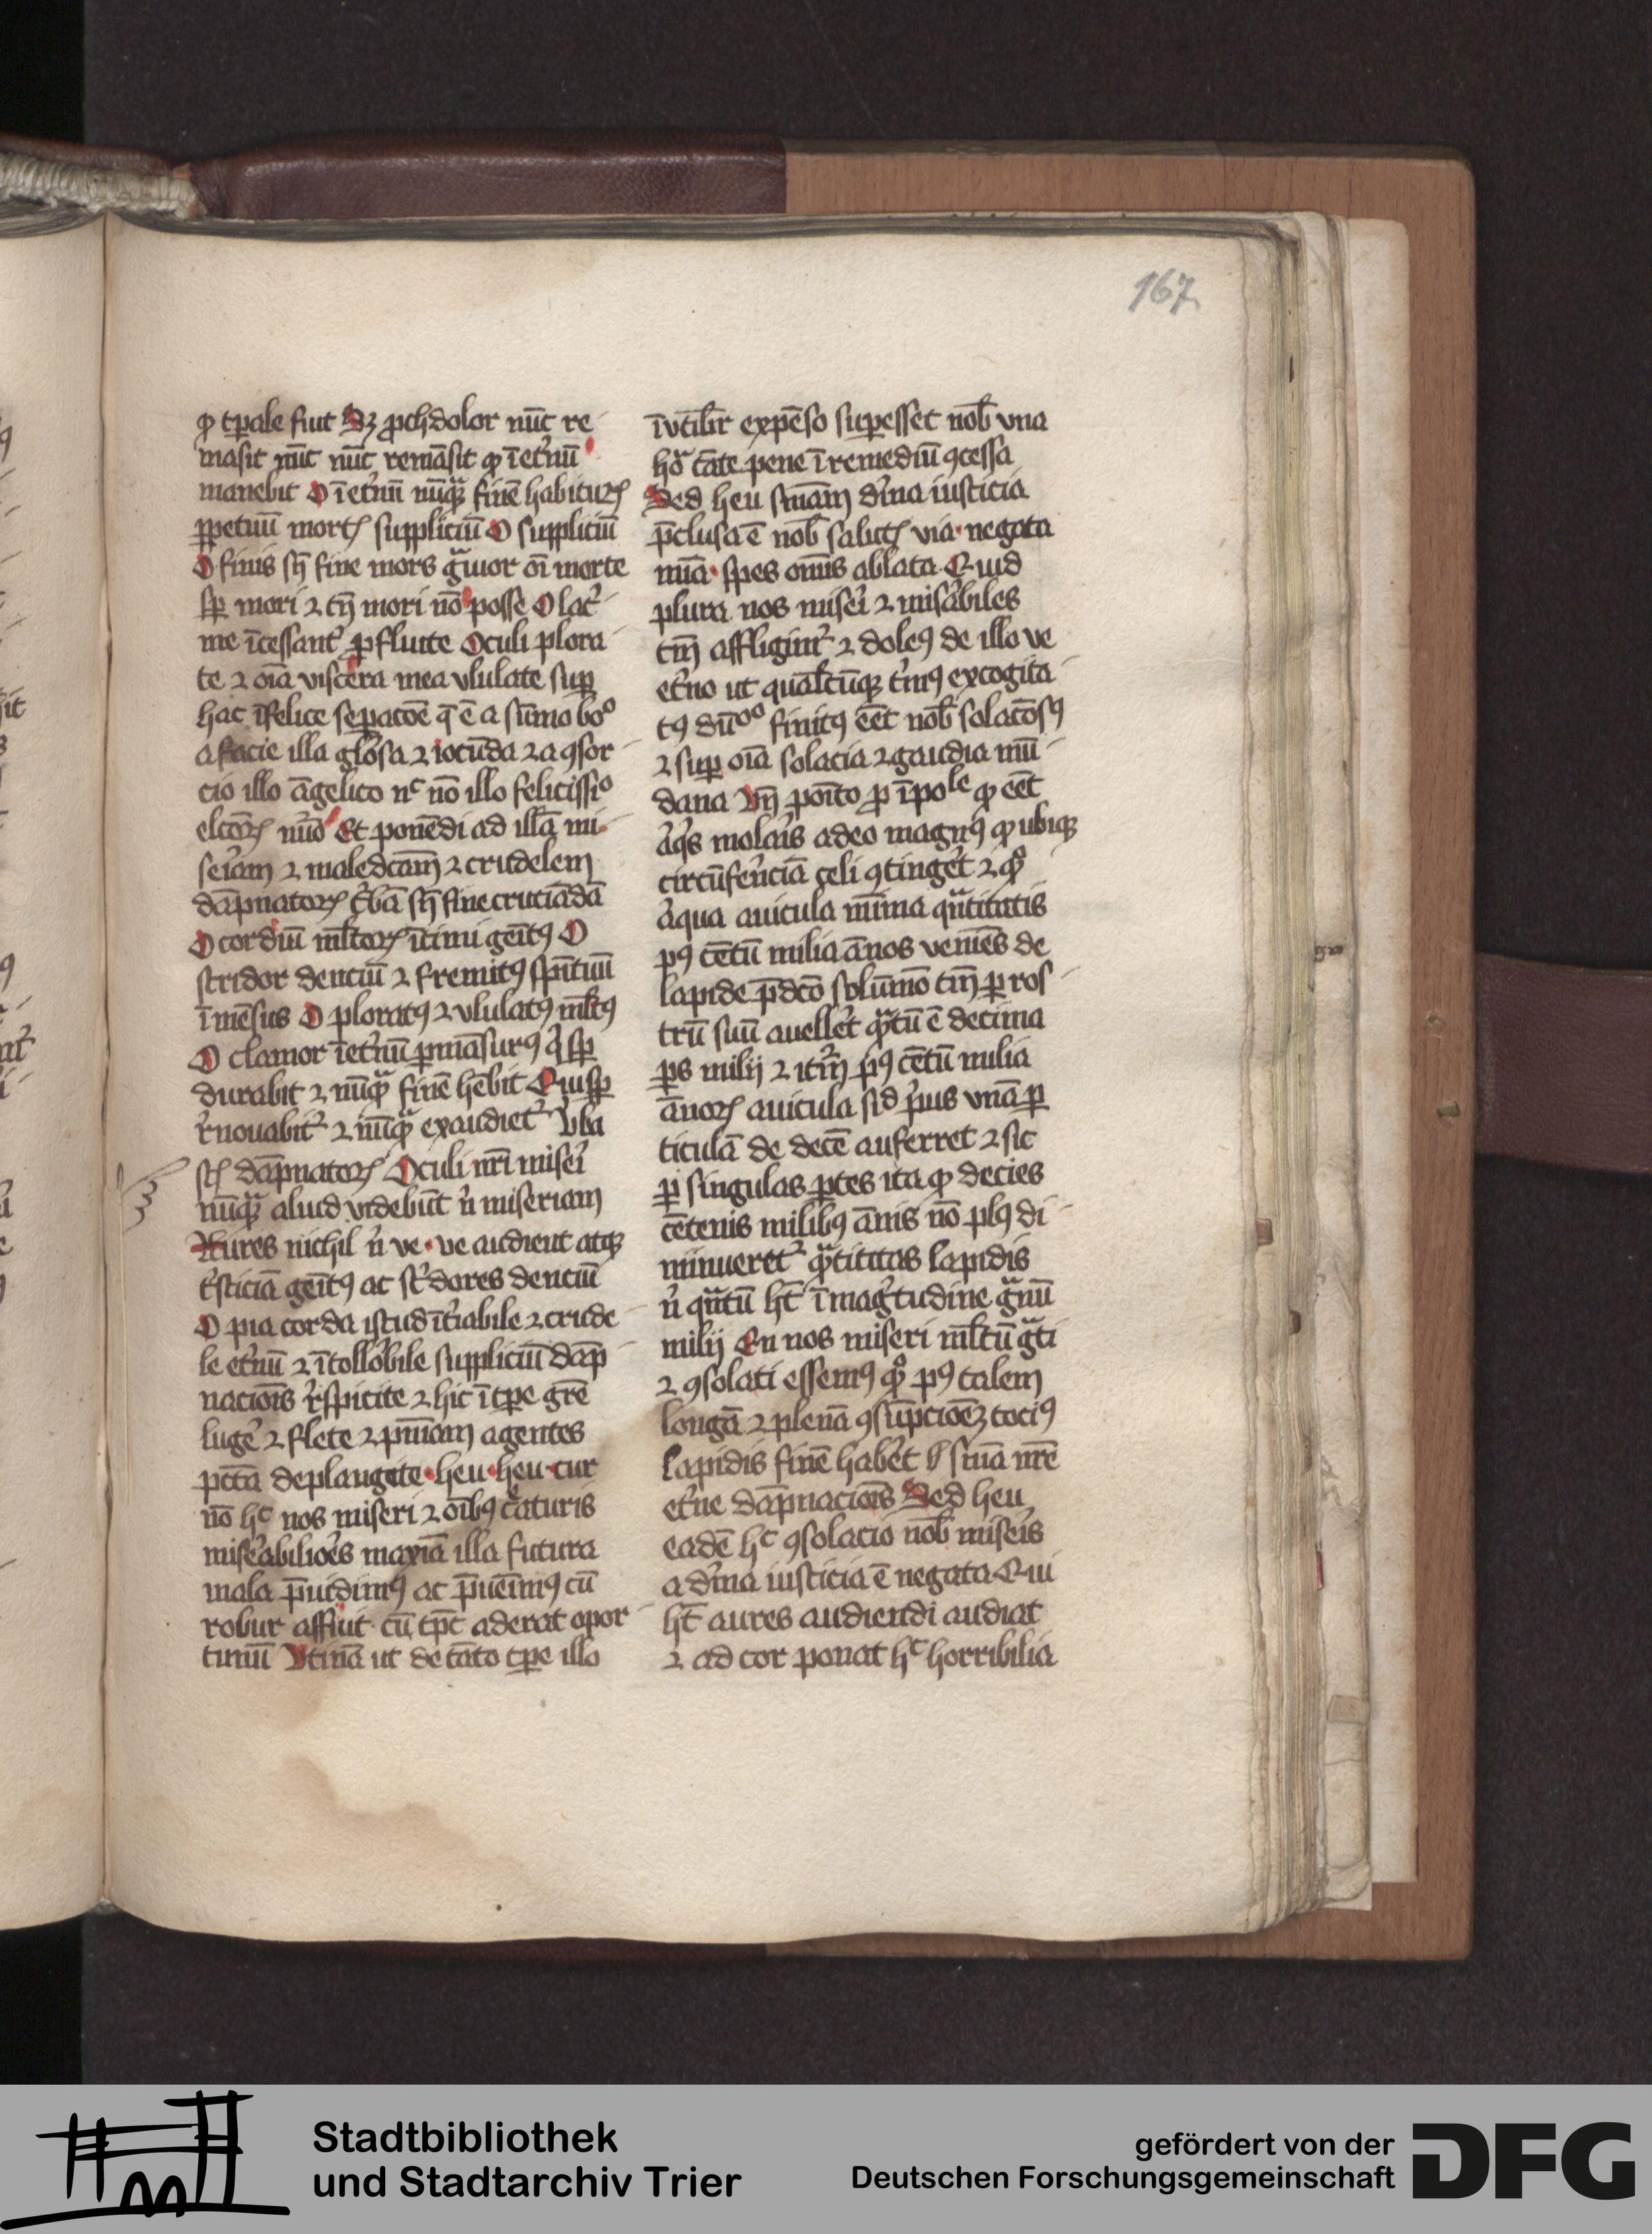 167
ꝙ tꝑale fuit Sꝫ ꝓchdolor nūc re
masit nūc nūc remāsit ꝙ ī et̉nū
manebit O ī et̉nū nūqᷓꝫ finē habituꝝ
ꝑpetuū mortꝭ suppliciū O suppliciū
O finis sn̄ fine mors gᷓuior oī morte
sꝑ mori ⁊ tn̄ mori nō posse O lac̉
me īcessant̉ ꝓfluite Oculi plora
te ⁊ oīa viscera mea vlulate suꝑ
hac īfelice seꝑacōē q̄ ē a sūmo boº
a facie illa glōsa ⁊ iocūda ⁊ a ꝯsor
cio illo āgelico nᶜ nō illo felicissiº
elc̄oꝝ nūō Et ponēdi ad illā mi
seīam ⁊ maledcām ⁊ crudelem
dāpnatoꝝ t̉bā sn̄ fine cruciādā
O cordiū ml̄toꝝ ītimi geītꝰ O
stridor denciū ⁊ fremitꝰ spn̄tuū
īmēsus O ploratꝰ ⁊ vlulatꝰ ml̄tꝰ
O clamor ī et̉nū ꝑmāsurꝰ q̇ sꝑ
durabit ⁊ nūqᷓ finē hēbit Qui sꝑ
r̉nouabit᷑ ⁊ nūqᷓ exaudiet᷑ Vba
stꝭ dāpnatoꝝ Oculi nr̄i miseỉ
nūqᷓꝫ aliud videbūt n̉ miseriam
Aures nichil n̉ ve · ve audient atqꝫ
t̉sticiā geītꝰ ac st̉dores denciū
O pia corda istud īt̉iabile ⁊ crude
le et̉nū ⁊ ītoll̉obile suppliciū dāp
nacioīs r̉spicite ⁊ hic ī tꝑe grē
lugẻ ⁊ flete ⁊ pn̄iam agentes
pctā deplangite · heu · heu · cur
nō hᶜ nos miseri ⁊ oībꝰ c̉aturis
misẻabilioēs maxīa illa futura
mala p̄uidimꝰ ac p̄ueīmꝰ cū
robur affuit cū tp̄c aderat opor
tunū Vtinā ut de tāto tꝑe illo
īvtilīr expēso suꝑesset nob̄ vna
hoᷓ tāte pene ī remediū ꝯcessa
Sed heu sniām d̉ina iusticia
p̄clusa ē nob̄ salutꝭ via · negata
nīīa · spes omīs ablata Quid
plura nos miseỉ ⁊ mis̉abiles
tm̄ affligim᷑ ⁊ dolemꝰ de illo ve
et̉no ut qual̄cūqꝫ t̉mꝰ excogita
tꝰ dūº finitꝰ eēt nob̄ solacōsꝰ
⁊ suꝑ oīa solacia ⁊ gaudia mū
dana Vn̄ poīto ꝑ īpole ꝙ eēt
a̓q̇s molaīs adeo magnꝰ ꝙ ubiqꝫ
circūfẻnciā celi ꝯtingẻt ⁊ qᷓ
a̓qua auicula nīīma qᷓntitatis
pꝰ cētū milia ānos veniēs de
lapide p̄dcō solūmō tm̄ ꝑ ros
trū suū auellẻt qᷓtū ē decima
ꝑs milij ⁊ it̉m pꝰ cētū milia
ānoꝝ auicula sid p̉ius vnā ꝑ
ticulā de decē auferret ⁊ sic
ꝑ singulas ꝑtes ita ꝙ decies
cētenis milibꝰ ānis nō plꝰ di
minueret᷑ qᷓtititas lapidis
n̉ qᷓntū hꝫ ī mag̉tudine gᷓnū
milij En nos miseri ml̄tū gᷓti
⁊ ꝯsolati essemꝰ qᷓ pꝰ talem
longā ⁊ plenā ꝯsūpcioēꝫ tociꝰ
lapidis finē habẻt sniā nr̄e
et̉ne dāpnacioīs Sed heu
eadē hᶜ ꝯsolacio nob̄ miseīs
a d̉ina iusticia ē negata Qui
hꝫ aures audiendi audiat
⁊ ad cor ponat hᶜ horribilia
Stadtbibliothek
und Stadtarchiv Trier
gefördert von der
Deutschen Forschungsgemeinschaft
DFG